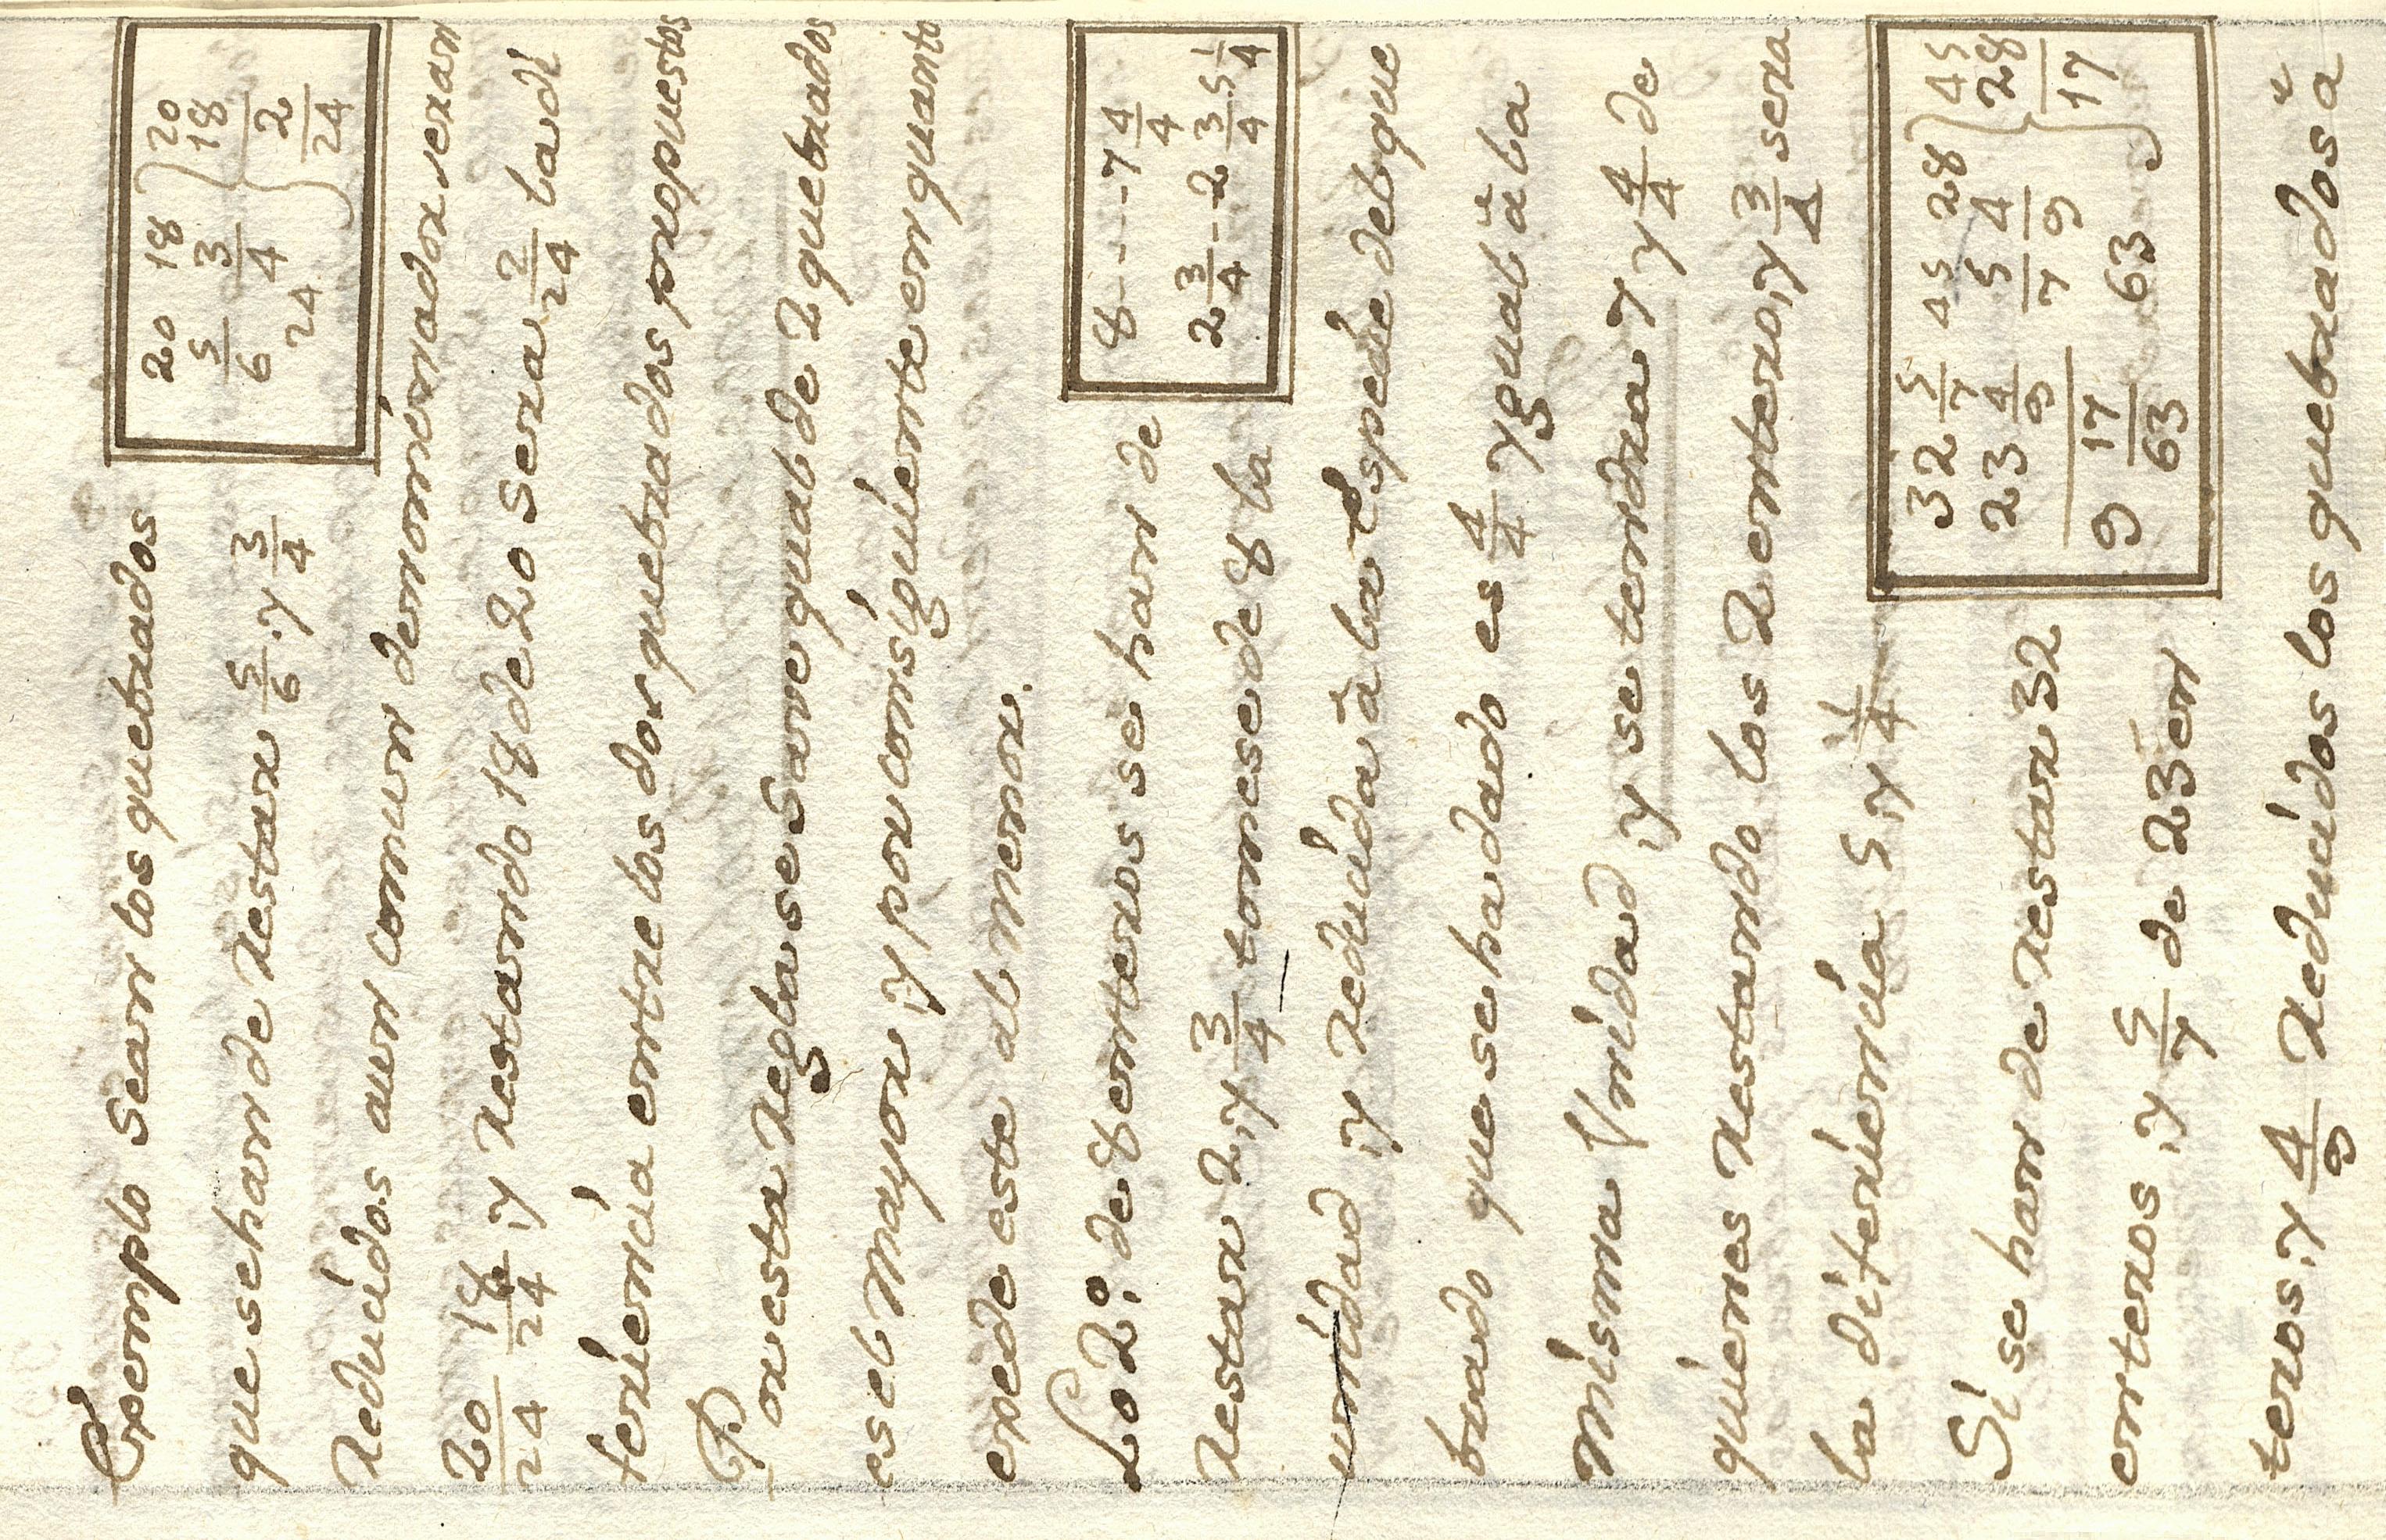 Exemplo Sean los quebrados
que se han de restar 5/6 . y 3/4
20 18 } 20
5/6 3/4 } 18
24 } 2/24
Reducidos aun comun denominador seran
20/24 18/24 ,y restando 18 de 20 sera 2/24 la di
ferencia entre los dos quebrados propuestos
Por esta regla se save qual de 2 quebrados
es el mayor ,y por consiguiente en quanto
exede este al menor.
Lo 2.º de 8 enteros se han de
restar 2 ,y 3/4 tomese de 8 la
8 - - - 7 4/4
2 3/4 - - 2 3/4 5 1/4
unidad ,y reducida à la especie del que
brado que se ha dado es 4/4 ygual à la
misma Unidad ,y se tendra 7 y 4/4 de
quienes restando los 2 enteros ,y 3/4 sera
la diferiencia 5 ,y 1/4
Si se han de restar 32
enteros ,y 5/7 de 23 en
32 5/7 45 28 } 45
23 4/9 5/7 4/9 } 28
9 17/63 63 } 17
teros ,y 4/9 Reducidos los quebrados à